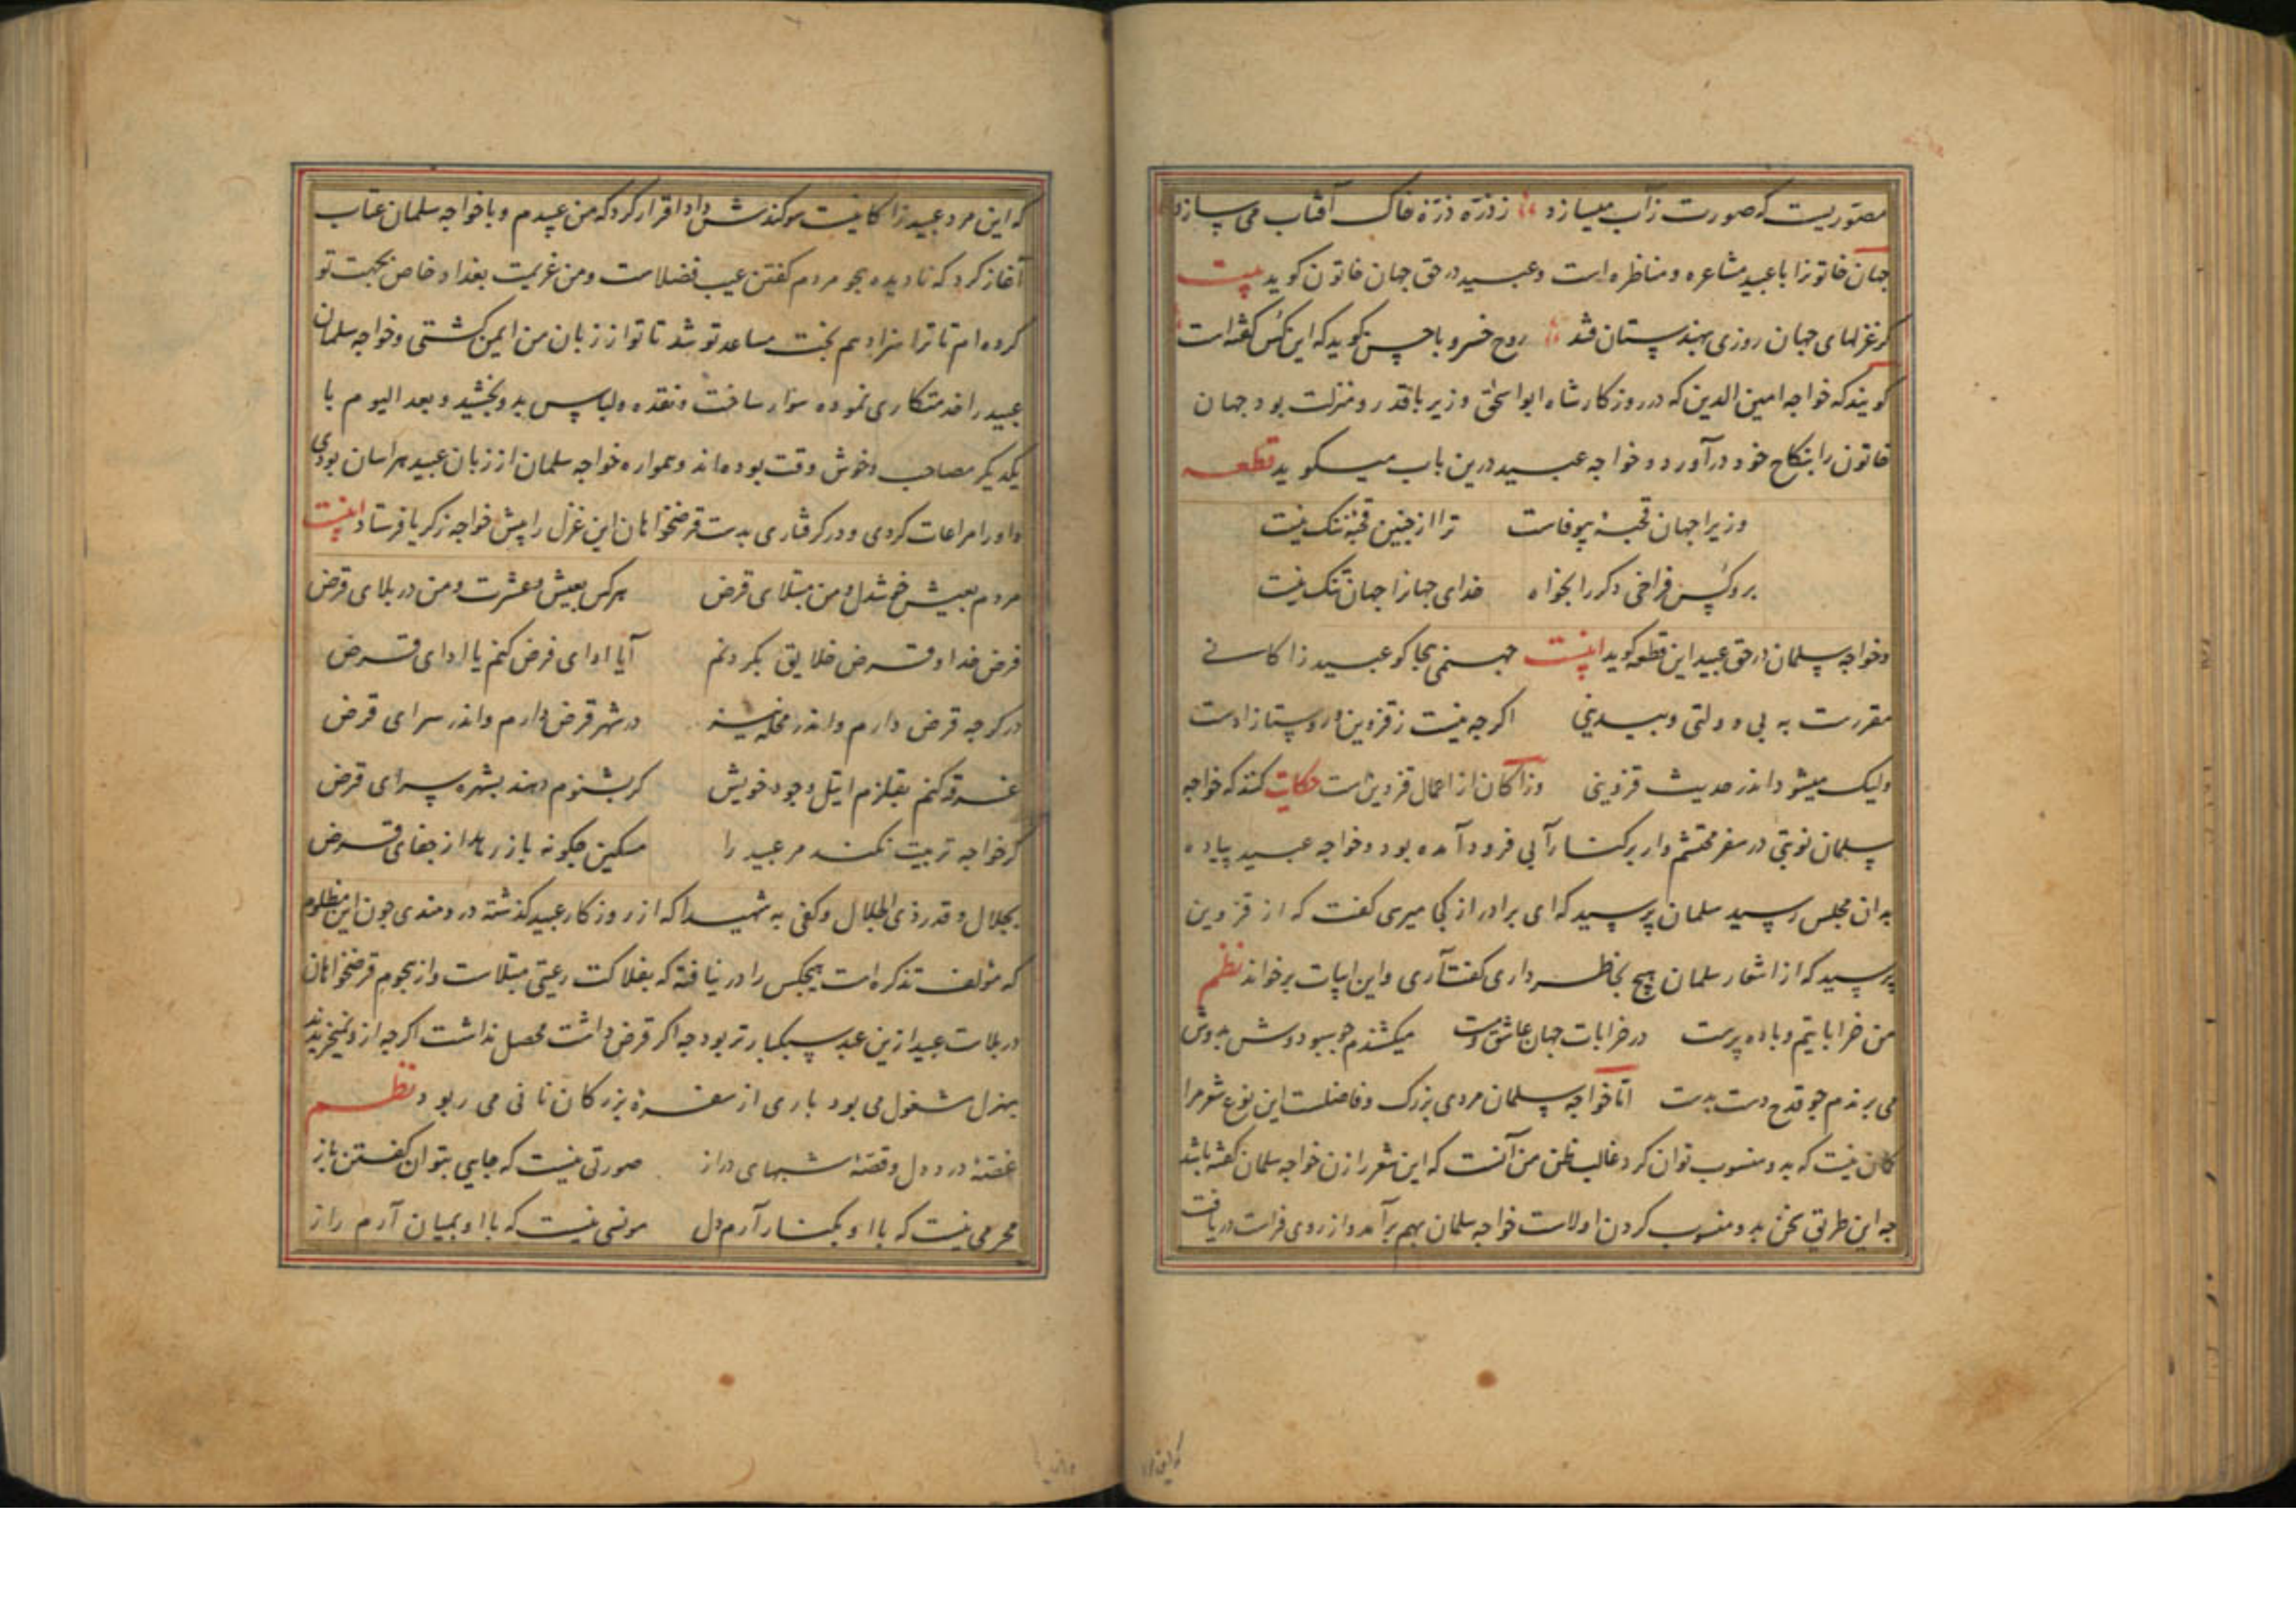 مصوریست که صورت ز آب میسازد ز ذره ذره خاک آفتاب می سازد
جهان خاتونرا با عبید مشاعره و مناظره است و عبید در حق جهان خاتون کوید بیت
کر غزلهای جهان روزی بهندستان فتد روح خسرو با حسن کوید که این کس کفته است
کویند که خواجه امین الدین که در روزکار شاه ابو اسحق وزیر باقدر و منزلت بود جهان
خاتون را بنکاح خود درآورد و خواجه عبید درین باب میکوید قطعه
وزیرا جهان قحبهٔ بیوفاست ترا از چنین قحبهٔ ننک نیست
برو کس فراخی دکر را بخواه خدای جهانرا جهان تنک نیست
و خواجه سلمان در حق عبید این قطعه کوید اینست جهنمی بجا کو عبید زاکانی
مقررست به بی دولتی و بیدینی اکرچه نیست ز قزوین و روستازادست
ولیک میشود اندر حدیث قزوینی وزاکان از اعمال قزوین است حکایت کنند که خواجه
سلمان نوبتی در سفر محتشم وار برکنار آبی فرود آمده بود و خواجه عبید پیاده
بدان مجلس رسید سلمان پرسید که ای برادر از کجا میرسی کفت که از قزوین
پرسید که از اشعار سلمان هیچ بخاطر داری کفت آری و این ابیات برخواند نظم
من خراباتیم و باده پرست در خرابات جهان عاشق و مست میکشندم چو سبو دوش بدوش
می برندم جو قدح دست بدست اما خواجه سلمان مردی بزرک و فاضلست این نوع شعر مرا
کمان نیست که بدو منسوب توان کرد غالب ظن من آنست که این شعر را زن خواجه سلمان کفته باشد
جه این طریق سخن بدو منسوب کردن اولاست خواجه سلمان بهم برآمد و از روی فراست دریافت
که این مرد عبید زاکانیست سوکندش داد اقرار کرد که من عبیدم و با خواجه سلمان عتاب
آغاز کرد که نادیده هجو مردم کفتن عیب فضلاست و من عزیمت بغداد خاص بجهت تو
کرده ام تا ترا سزا دهم بخت مساعد تو شد تا تو از زبان من ایمن کشتی و خواجه سلمان
عبید را خدمتکاری نموده سوار ساخت و نقده و لباس بدو بخشید و بعد الیوم با
یکدیکر مصاحب و خوش وقت بوده اند و همواره خواجه سلمان از زبان عبید هراسان بودی
و او را مراعات کردی و در کرفتاری بدست قرضخواهان این غزل را پیش خواجه زکریا فرستاد اینست
مردم بعیش خوشدل و من مبتلای قرض هرکس بعیش و عشرت و من در بلای قرض
فرض خدا و قرض خلایق بکردنم آیا ادای فرض کنم یا ادای قرض
در کوجه قرض دارم و اندر محله نیز در شهر قرض دارم و اندر سرای قرض
غرقه کنم بقلزم ایتل وجود خویش کر بشنوم دهند بشهره سرای قرض
کر خواجه تربیت نکند مر عبید را مسکین جکونه باز رهد از جفای قرض
بجلال و قدر ذی الجلال و کفی به شهیدا که از روزکار عبید کذشته دردمندی جون این مظلوم
که مؤلف تذکره است هیجکس را در نیافته که بفلاکت رعیتی مبتلاست و از هجوم قرضخواهان
در بلاست عبید ازین عبد سبکبارتر بود جه اکر قرض داشت محصل نداشت اکرجه ازو نمیخریدند
بهزل مشغول می بود باری از سفره بزرکان نانی می ربود نظم
غصهٔ درد دل و قصهٔ شبهای دراز صورتی نیست که جایی بتوان کفتن باز
محرمی نیست که با او بکنار آرم دل مونسی نیست که با او بمیان آرم راز